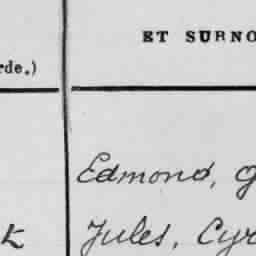 ET SURNO
rde.)
Edmond, G
k Jules, Cyr